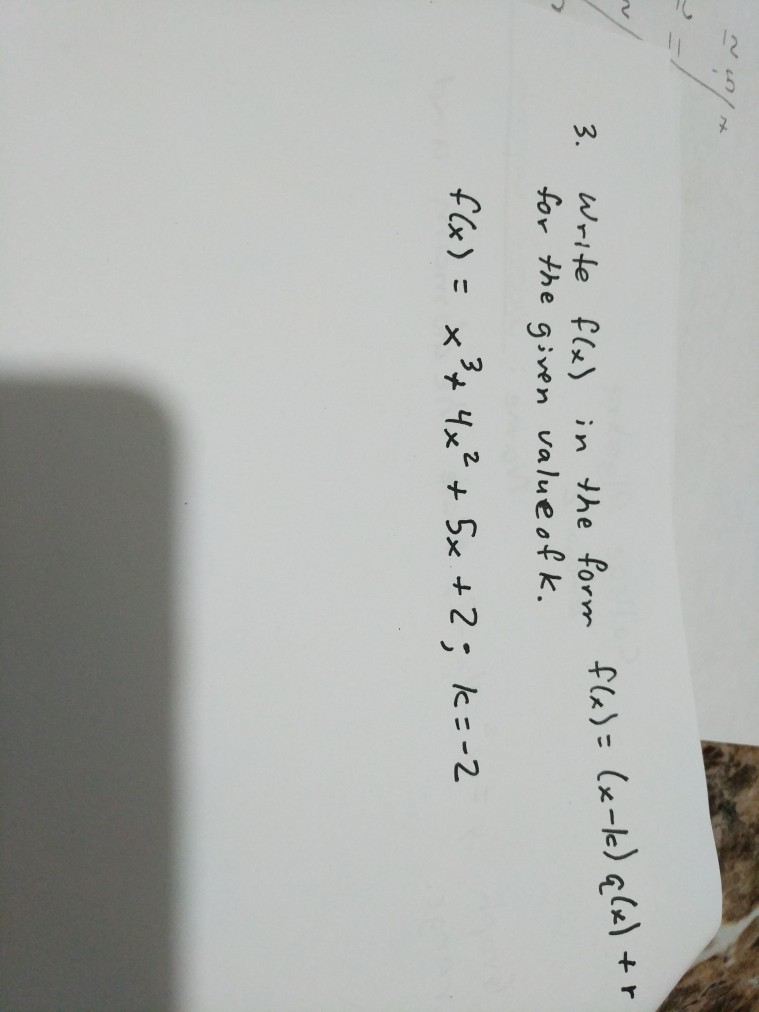 3. Write f(x) in the form f(x) = (x-k) q(x) + r
for the given value of k.
f(x) = x³ + 4x² + 5x + 2 ; k = -2